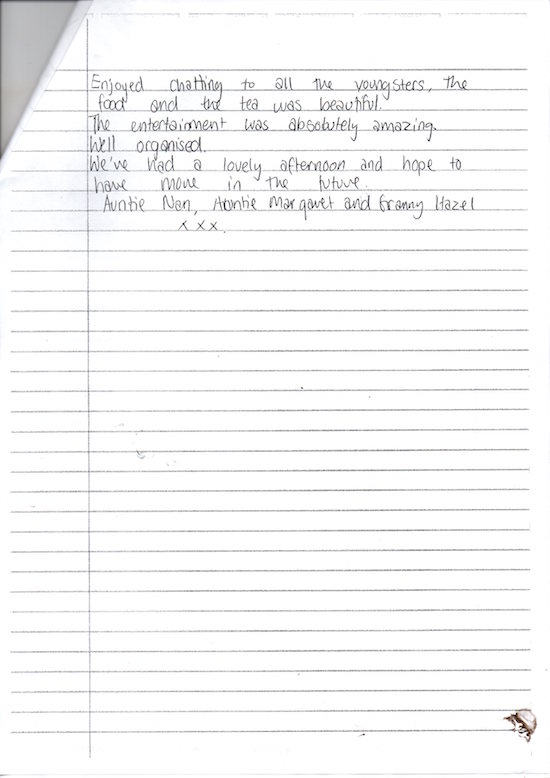 Enjoyed chatting to all the youngsters, The
food and the tea was beautiful.
The entertainment was absolutely amazing.
Well organised.
We've had a lovely afternoon and hope to
have more in the future.
Auntie Nan, Auntie Margaret and Granny Hazel
x x x.